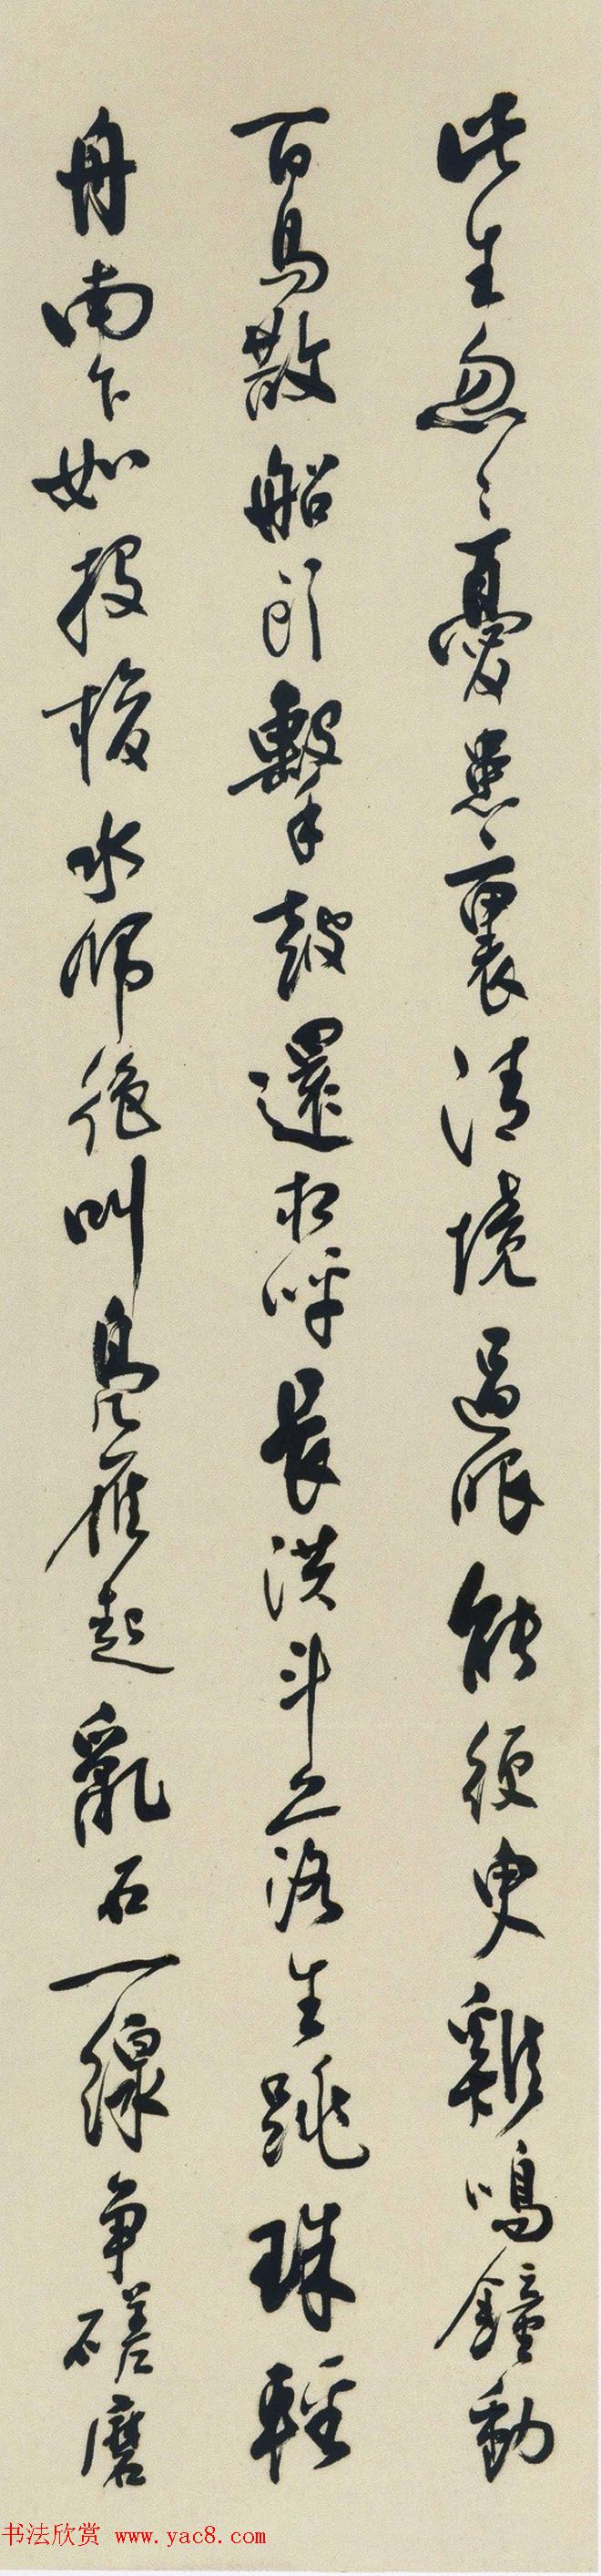 此生忽忽憂患裏清境過眼能須臾雞鳴鐘動
百鳥散船頭擊鼓還相呼長洪斗落生跳珠輕
舟南下如投梭水師絕叫鳧雁起亂石一線爭磋磨
书法欣赏 www.yac8.com